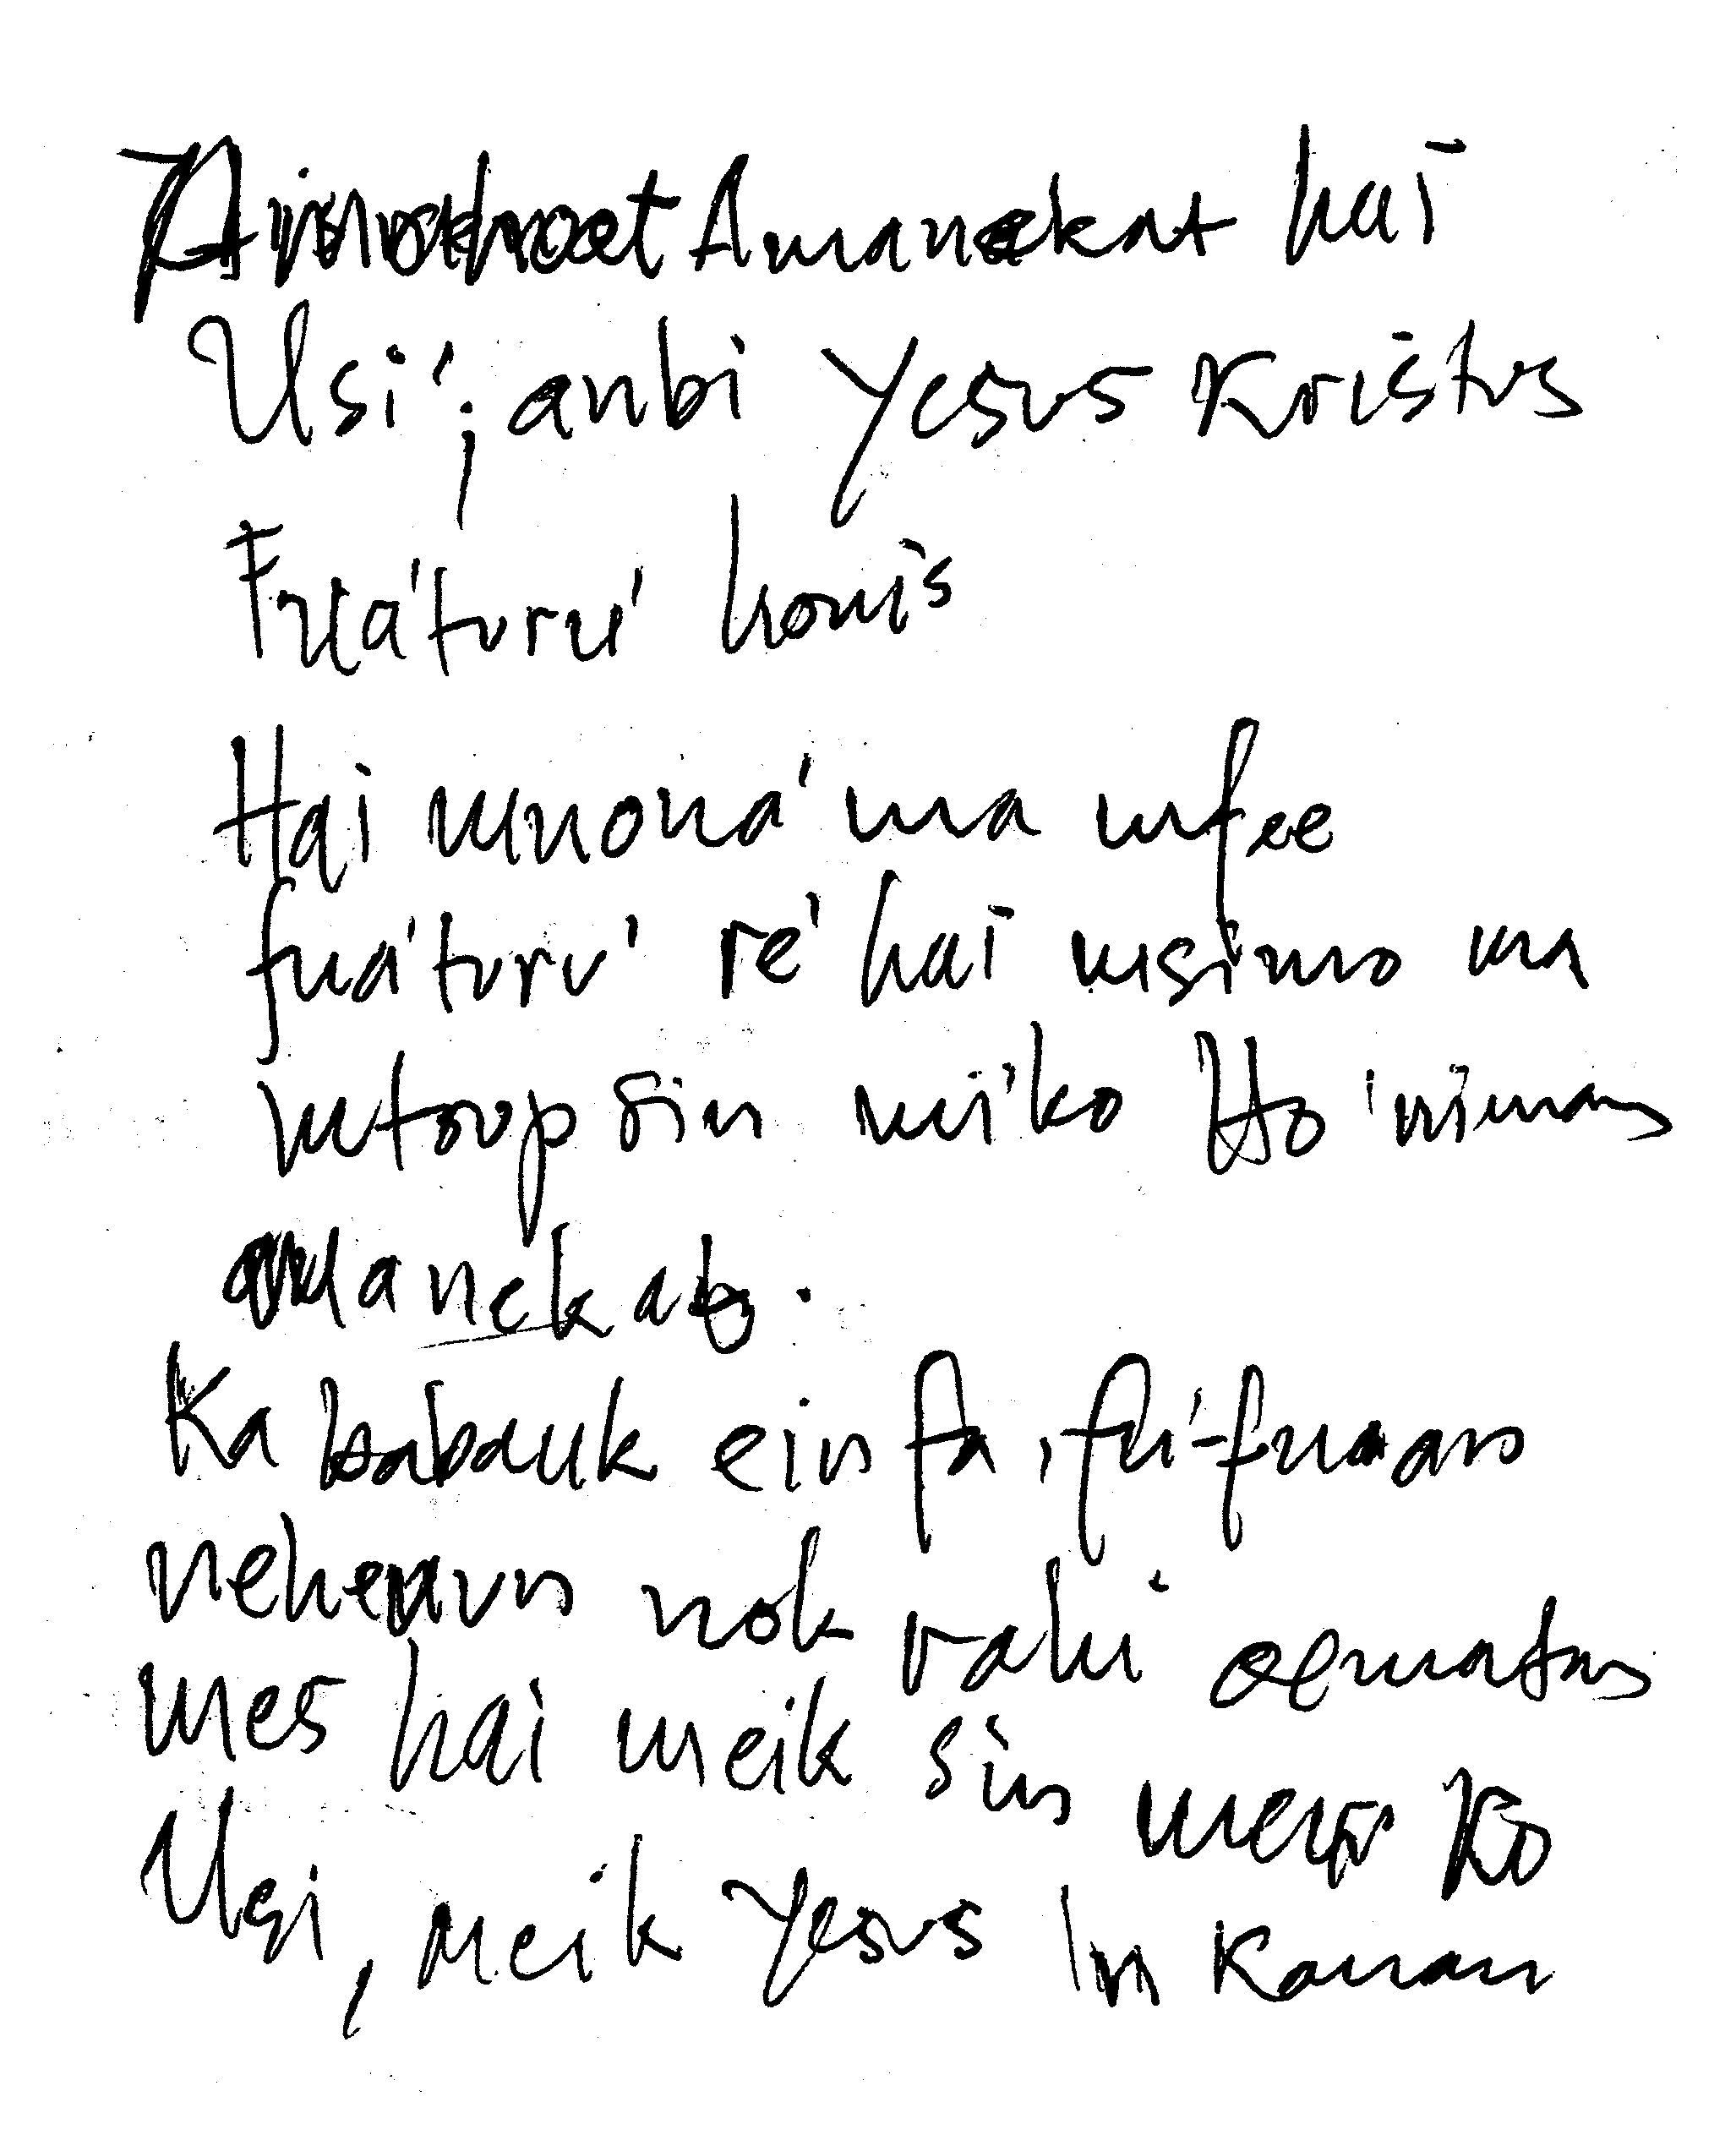 Amanekat hai
Usi', anbi Yesus Kristus
Fua'turu' honis
Hai mnona' ma mfee
fua'turu' re' hai msimo ma
mtoup sin mi'ko Ho 'nimam
manekat.
Ka babauk einfa, fui-fuaan
neheun nok nahi
mes hai meik sin meu Ko
Usi, meik Yesus In Kanan